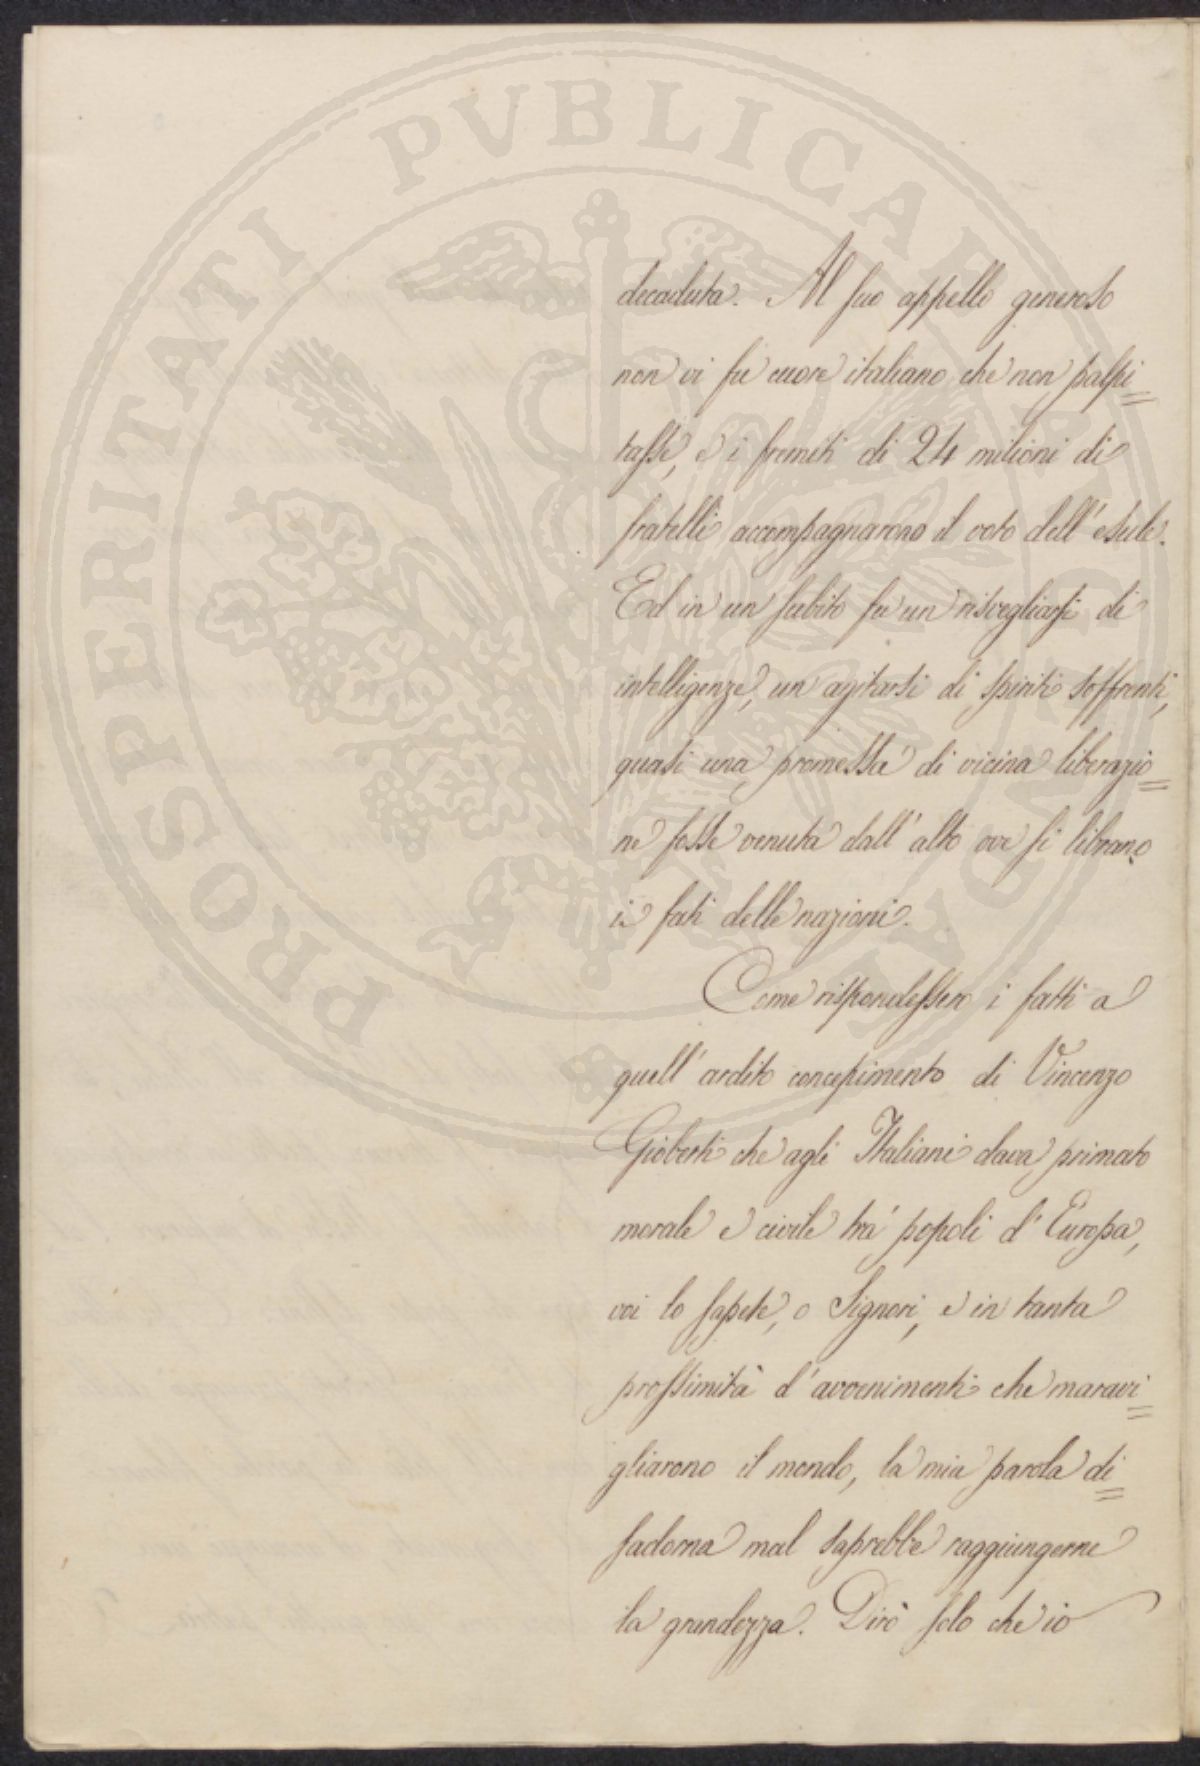 PROSPERITATI PVBLICAE
decaduta. Al suo appello generoso
non vi fu cuore italiano che non palpi=
tasse, e i fremiti di 24 milioni di
fratelli accompagnarono il voto dell'esule.
Ed in un subito fu un risvegliarsi di
intelligenze, un agitarsi di spiriti soffrenti,
quasi una promessa di vicina liberazio=
ne fosse venuta dall'alto ove si librano
i fati delle nazioni.
Come rispondessero i fatti a
quell'ardito concepimento di Vincenzo
Gioberti che agli Italiani dava primato
morale e civile tra' popoli d'Europa,
voi lo sapete, o Signori, e in tanta
prossimità d'avvenimenti che maravi=
gliarono il mondo, la mia parola di=
sadorna mal saprebbe raggiungerne
la grandezza. Dirò solo che io